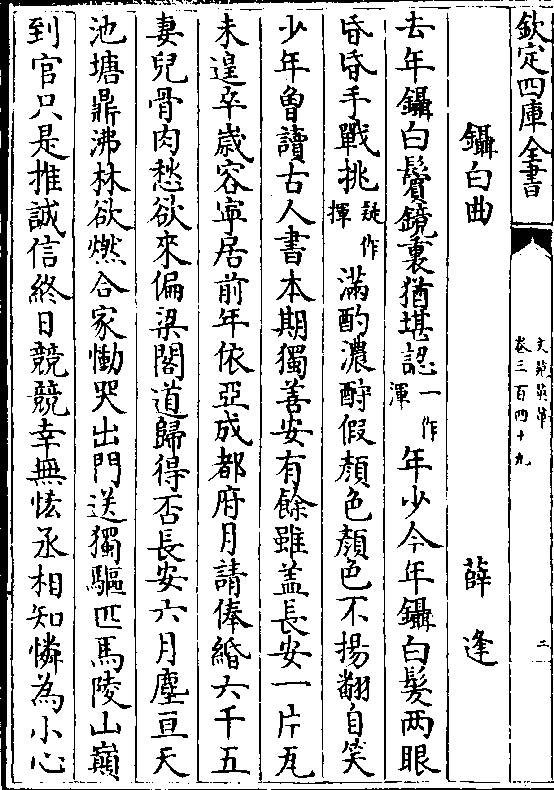 欽定四庫全書
文苑英華
卷三百四十九
二
鑷白曲
薛逢
去年鑷白鬢鏡裏猶堪認一作渾年少今年鑷白髮两眼
昏昏手戰挑疑作揮滿酌濃酧假顏色顏色不揚翻自笑
少年曾讀古人書本期獨善安有餘雖盖長安一片瓦
未遑卒歲容寧居前年依亞成都府月請俸緡六千五
妻兒骨肉愁欲來偏梁閣道歸得否長安六月塵亘天
池塘鼎沸林欲燃合家慟哭出門送獨驅匹馬陵山巔
到官只是推誠信終日兢兢幸無恡丞相知憐為小心